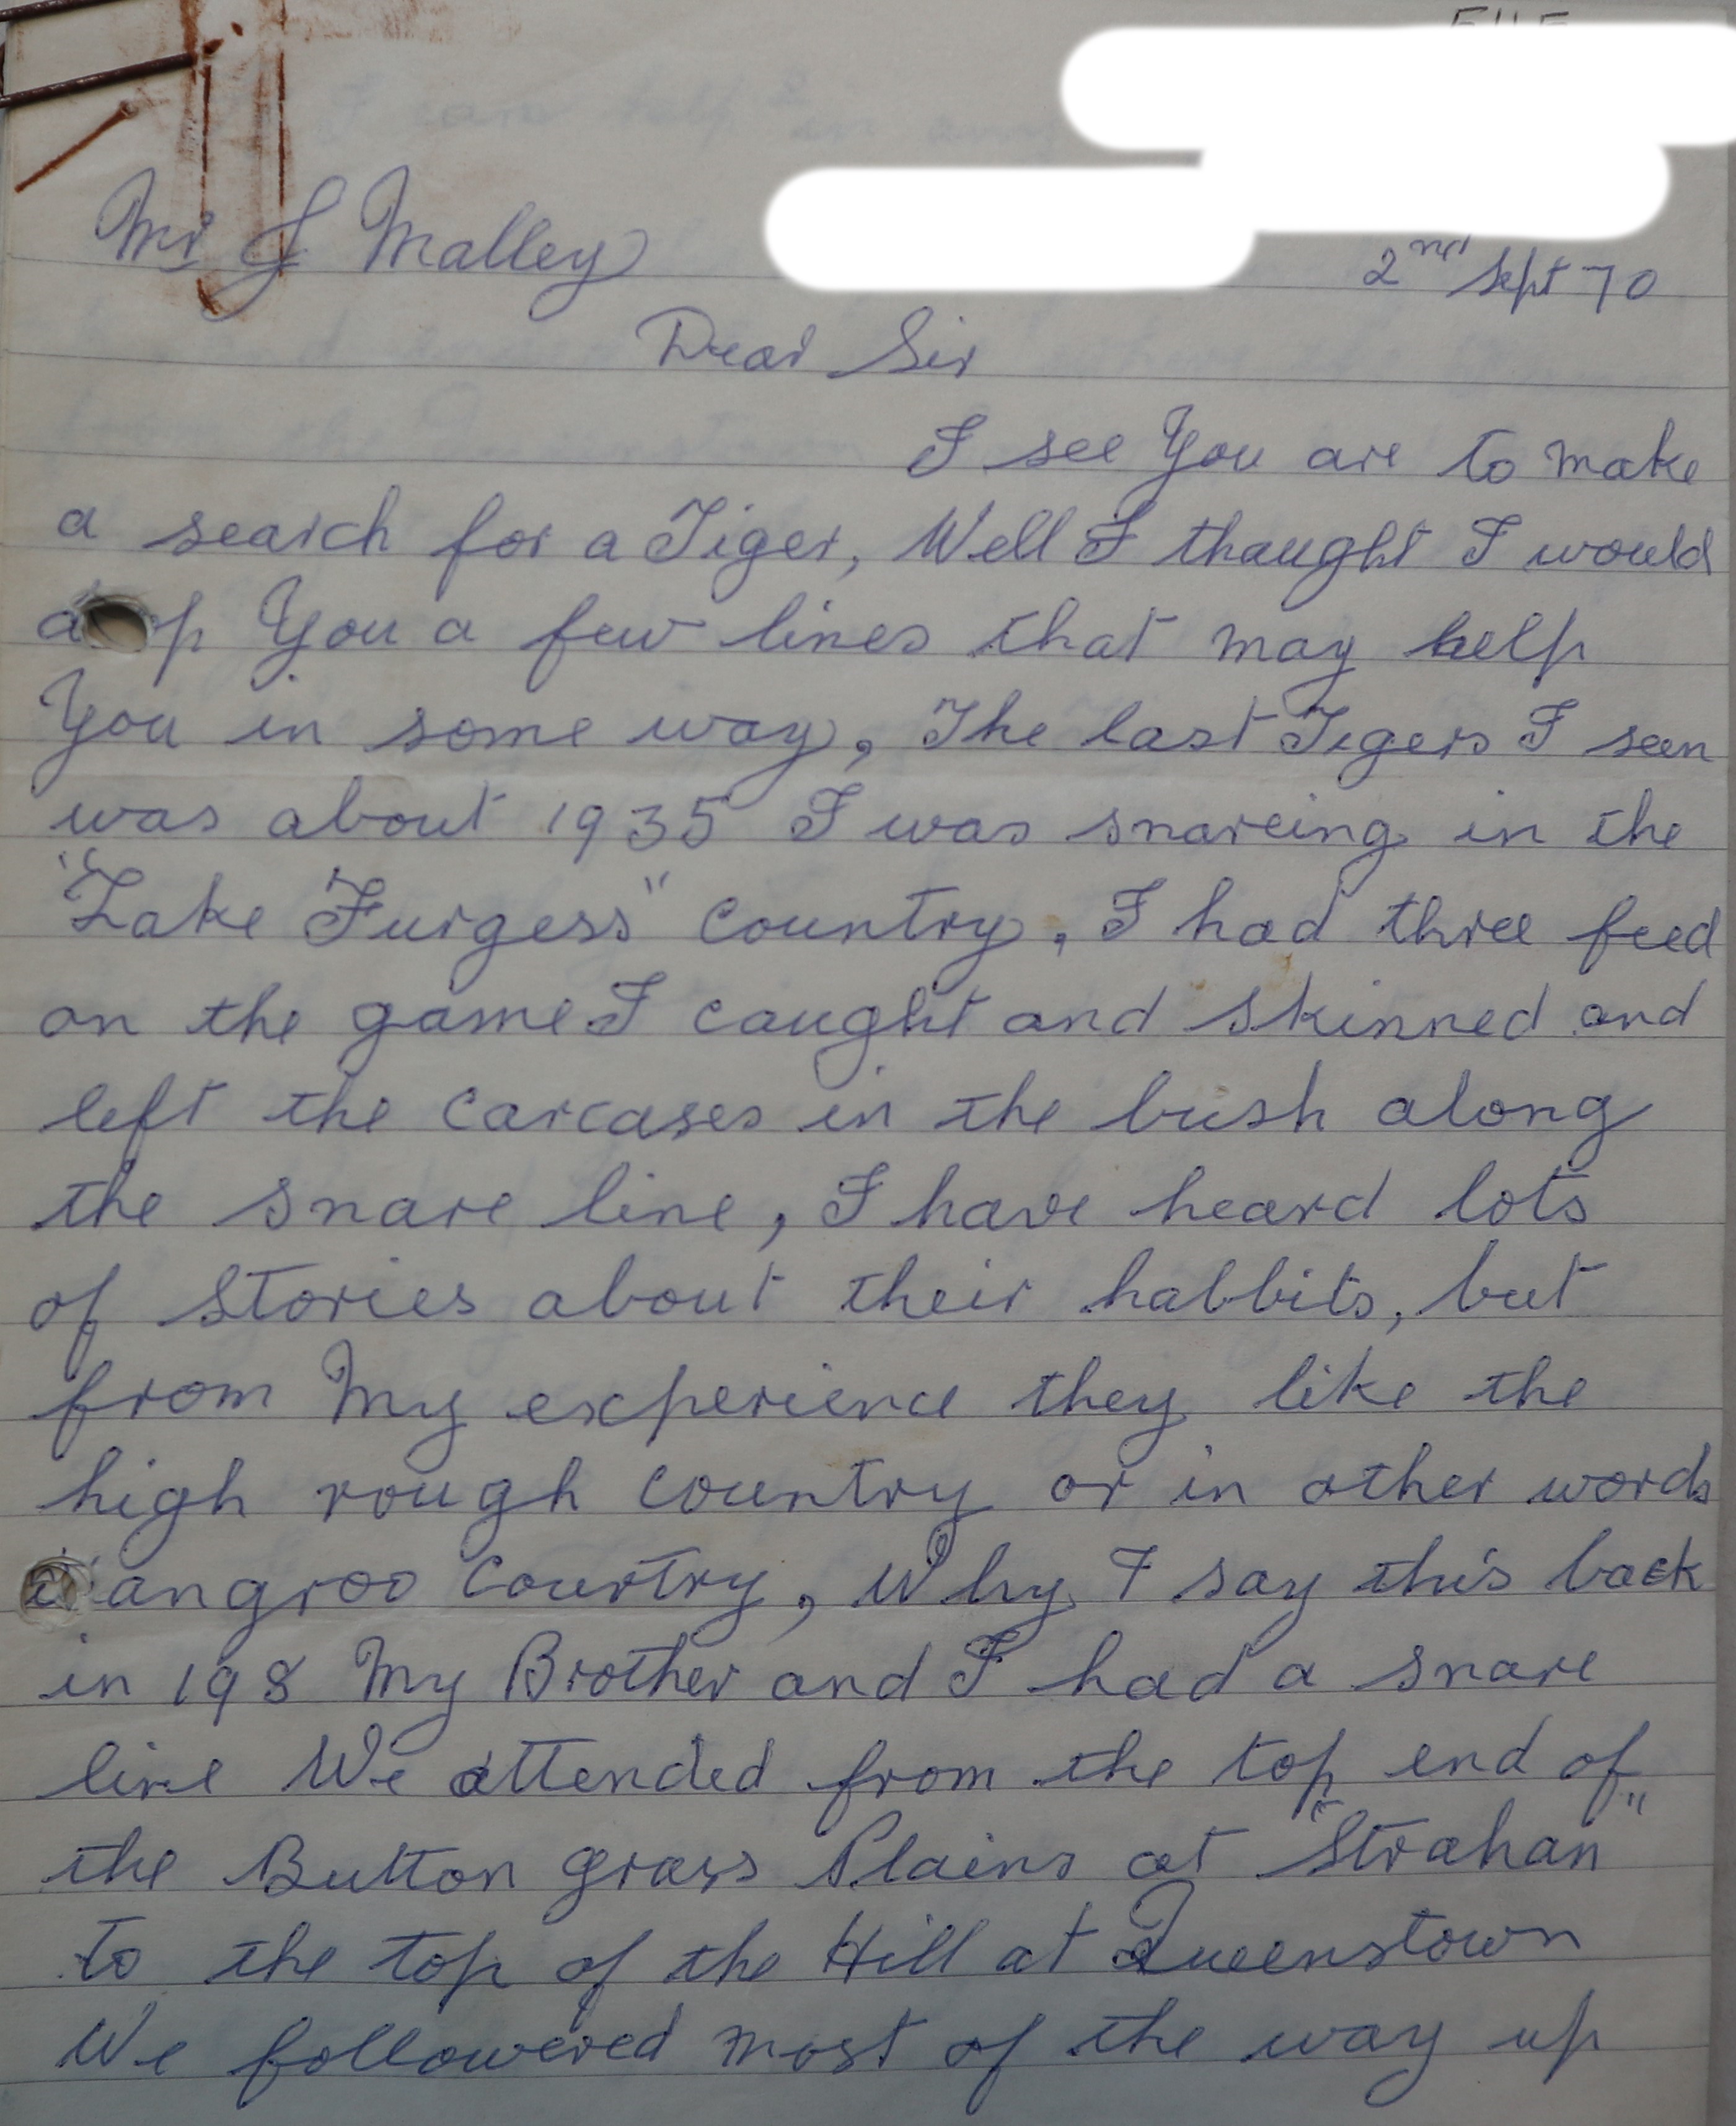 Mr J Malley
2nd Sept 70
Dear Sir
I see You are to make
a search for a Tiger, Well I thaught I would
drop You a few lines that may help
You in some way, The last Tigers I seen
was about 1935 I was snareing in the
"Lake Furgess" country, I had three feed
on the game I caught and skinned and
left the carcases in the bush along
the snare line, I have heard lots
of stories about their habbits, but
from My experience they like the
high rough country or in other words
angroo country, Why I say this back
in 198 My Brother and I had a snare
line We attended from the top end of
the Button grass Plains at "Strahan"
to the top of the Hill at Queenstown
We followered most of the way up